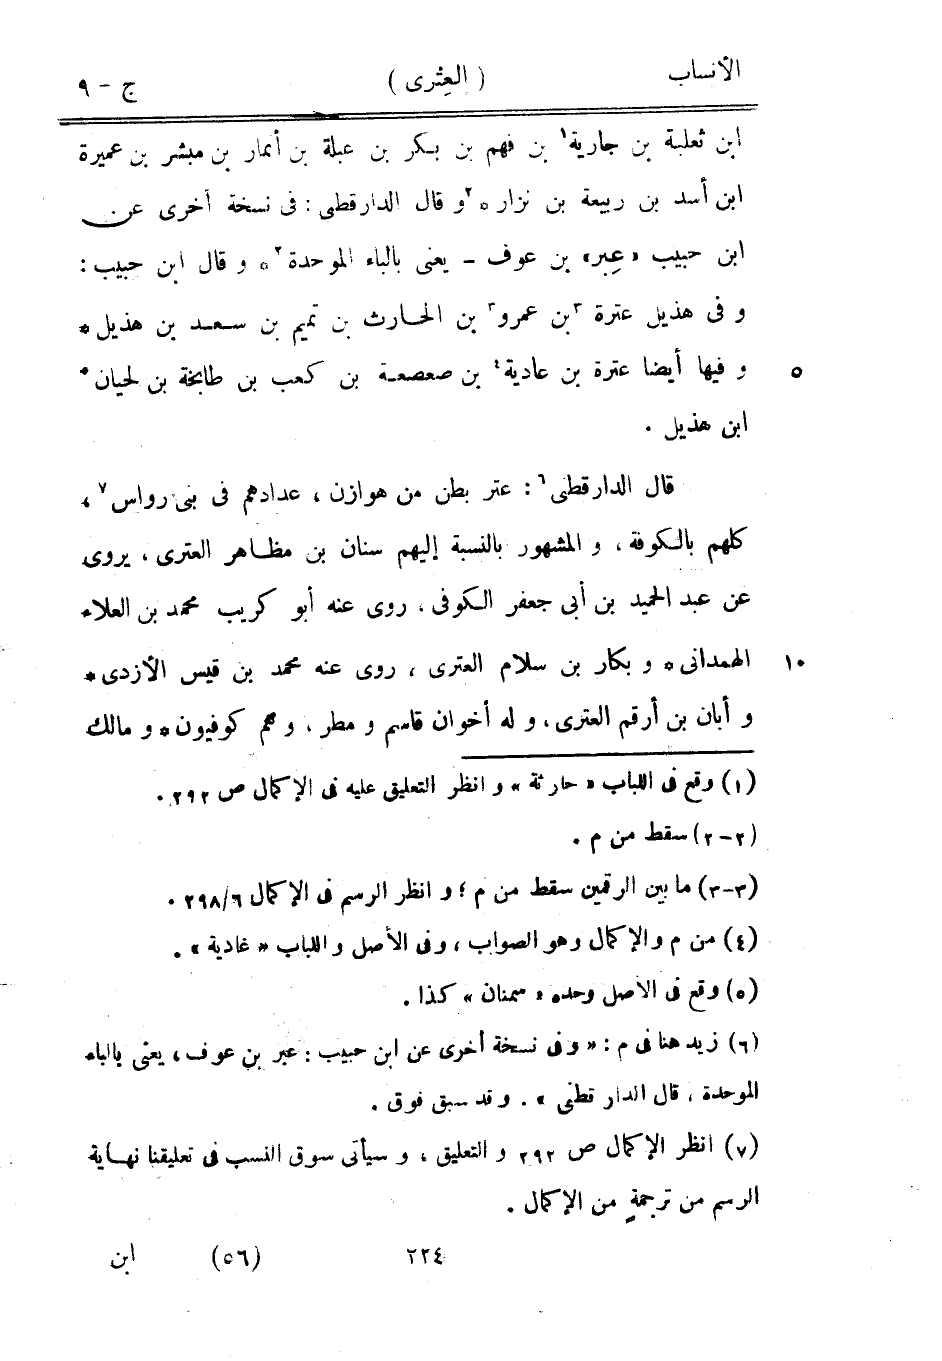 الأنساب ( العِثرى ) ج - ٩
ابن ثعلبة بن جارية١ بن فهم بن بكر بن عبلة بن أنمار بن مبشر بن عميرة
ابن أسد بن ربيعة بن نزار ٥ ٢و قال الدارقطى : فى نسخة أخرى عن
ابن حبيب « عِبر» بن عوف - يعنى بالباء الموحدة٢ ٥ و قال ابن حبيب :
و فى هذيل عترة ٣بن عمرو٣ بن الحارث بن تميم بن سعد بن هذيل *
و فيها أيضا عترة بن عادية٤ بن صعصعة بن كعب بن طابخة بن لحيان٥ ٥
ابن هذيل .
قال الدارقطى٦ : عتر بطن من هوازن ، عدادهم فى بنى رواس٧ ،
كلهم بالكوفة ، و المشهور بالنسبة إليهم سنان بن مظاهر العترى ، يروى
عن عبد الحميد بن أبى جعفر الكوفى ، روى عنه أبو كريب محمد بن العلاء
الهمدانى * و بكار بن سلام العترى ، روى عنه محمد بن قيس الأزدى * ١٠
و أبان بن أرقم العترى ، و له أخوان قاسم و مطر ، و هم كوفيون * و مالك
(١) وقع فى اللباب « حارثة » و انظر التعليق عليه فى الإكمال ص ٢٩٢ .
(٢-٢) سقط من م .
(٣-٣) ما بين الرقمين سقط من م ؛ و انظر الرسم فى الإكمال ٦/٢٩٨ .
(٤) من م و الإكمال وهو الصواب ، وفى الأصل و اللباب « غادية » .
(٥) وقع فى الأصل وحده « سمنان » كذا .
(٦) زيد هنا فى م : « وفى نسخة أخرى عن ابن حبيب : عبر بن عوف ، يعنى بالباء
الموحدة ، قال الدار قطنى » . و قد سبق فوق .
(٧) انظر الإكمال ص ٢٩٢ و التعليق ، و سيأتى سوق النسب فى تعليقنا نهاية
الرسم من ترجمةٍ من الإكمال .
٢٢٤ (٥٦) ابن